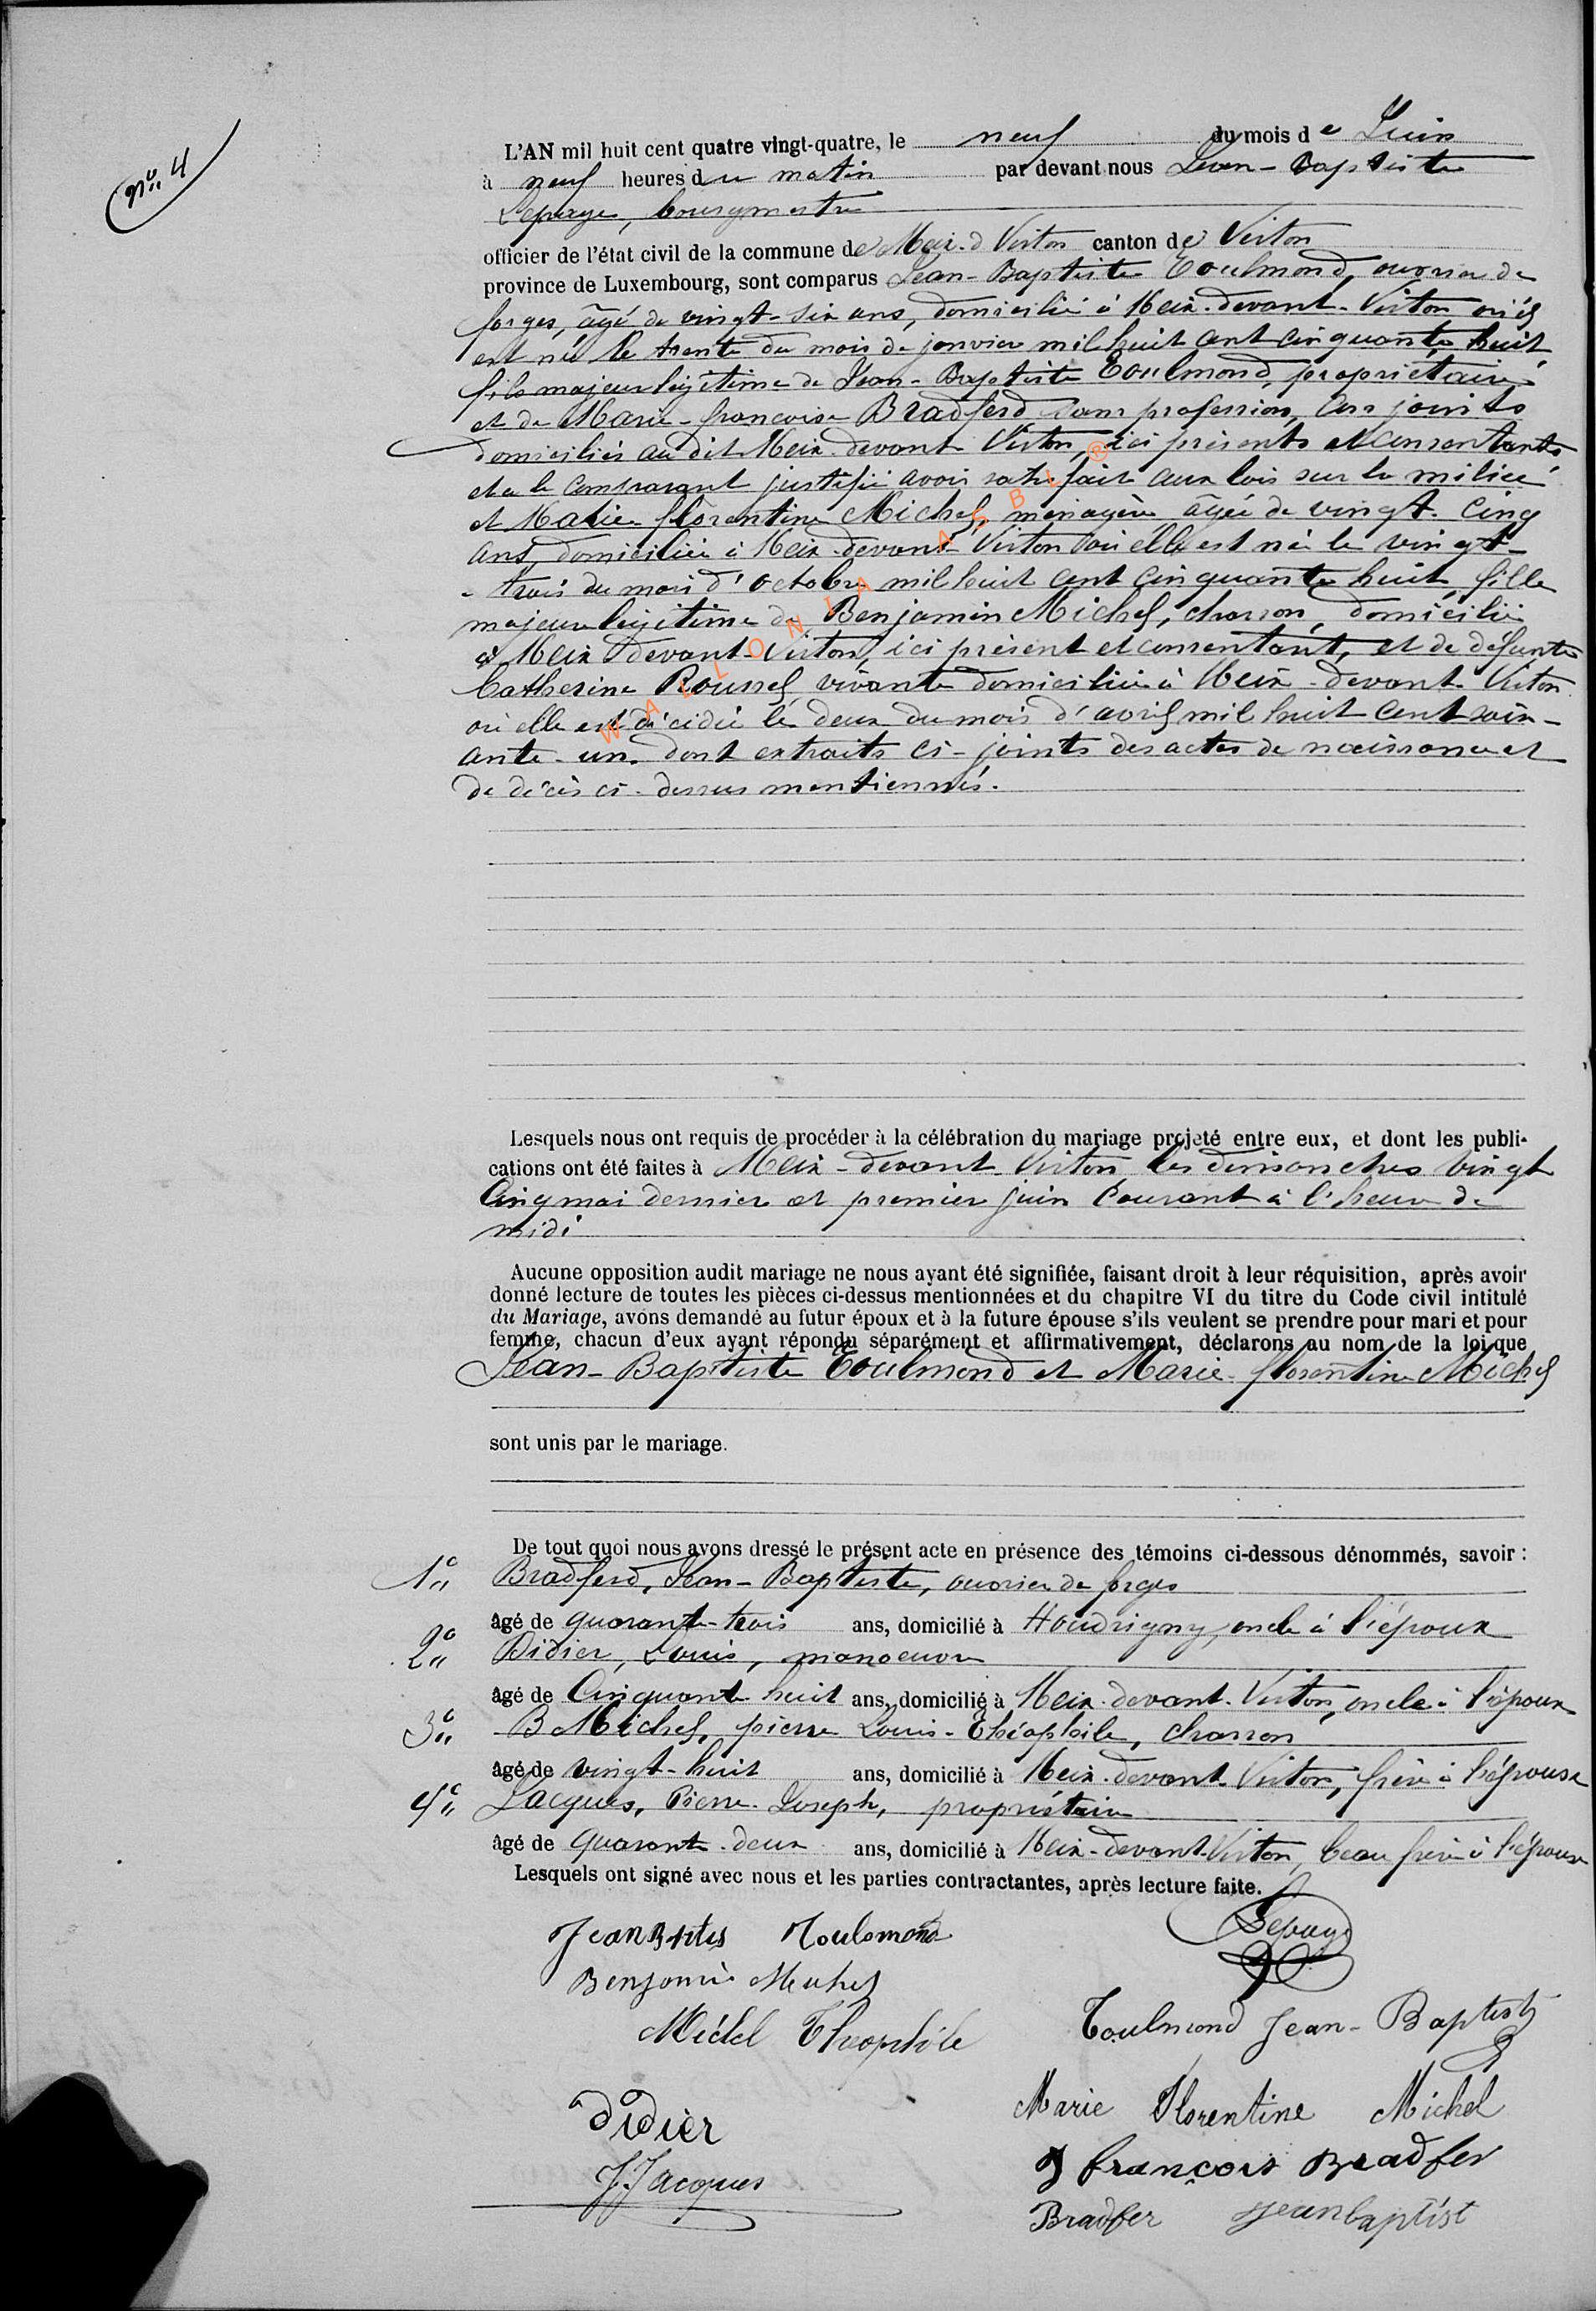 N° 4
L'AN mil huit cent quatre vingt-quatre, le neuf du mois de Juin
à neuf heures du matin par devant nous Jean-Baptiste
Lepage, bourgmestre
officier de l'état civil de la commune de Meix-d-Virton canton de Virton
province de Luxembourg, sont comparus Jean-Baptiste Toulmond, ouvrier de
forges, âgé de vingt-six ans, domicilié à Meix-devant-Virton où il
est né le trente du mois de janvier mil huit cent cinquante huit
fils majeur légitime de Jean-Baptiste Toulmond, propriétaire
et de Marie-françoise Bradferd sans profession, conjoints
domiciliés au dit Meix-devant Virton, ici présents et consentants
et a le comparant justifié avoir satisfait aux lois sur la milice
et Marie florentine Michel, ménagère âgée de vingt-cinq
ans, domiciliée à Meix-devant-Virton où elle est née le vingt-
-trois du mois d'octobre mil huit cent cinquante huit, fille
majeure légitime de Benjamin Michel, charron, domicilié
à Meix devant-Virton, ici présent et consentant, et de défunte
Catherine Roussel, vivante domiciliée à Meix-devant-Virton
où elle est décédée le deux du mois d'avril mil huit cent soix-
ante-un, dont extraits ci-joints des actes de naissance et
de décès ci-dessus mentionnés.
WALLONIA ASBL ®
Lesquels nous ont requis de procéder à la célébration du mariage projeté entre eux, et dont les publi-
cations ont été faites à Meix-devant-Virton, les dimanches vingt
cinq mai dernier et premier juin courant à l'heure de
midi
Aucune opposition audit mariage ne nous ayant été signifiée, faisant droit à leur réquisition, après avoir
donné lecture de toutes les pièces ci-dessus mentionnées et du chapitre VI du titre du Code civil intitulé
du Mariage, avons demandé au futur époux et à la future épouse s'ils veulent se prendre pour mari et pour
femme, chacun d'eux ayant répondu séparément et affirmativement, déclarons au nom de la loi que
Jean-Baptiste Toulmond et Marie-florentine Michel
sont unis par le mariage.
De tout quoi nous avons dressé le présent acte en présence des témoins ci-dessous dénommés, savoir :
1° Bradferd, Jean-Baptiste, ouvrier de forges
âgé de quarante-trois ans, domicilié à Houdrigny, oncle à l'époux
2° Didier, Louis, manoeuvre
âgé de Cinquante huit ans, domicilié à Meix-devant-Virton, oncle à l'époux
3° B Michel, pierre Louis-Théophile, charron
âgé de vingt-huit ans, domicilié à Meix-devant-Virton, frère à l'épouse
4° Jacques, Pierre-Joseph, propriétaire
âgé de quarante-deux ans, domicilié à Meix-devant-Virton, beau frère à l'épouse
Lesquels ont signé avec nous et les parties contractantes, après lecture faite.
Jean Toulomond Lepage
Benjamin Michel
Michel Théophile Toulmond Jean-Baptiste
Didier Marie Florentine Michel
J. Jacques françois Bradfer
Bradfer jeanbaptist